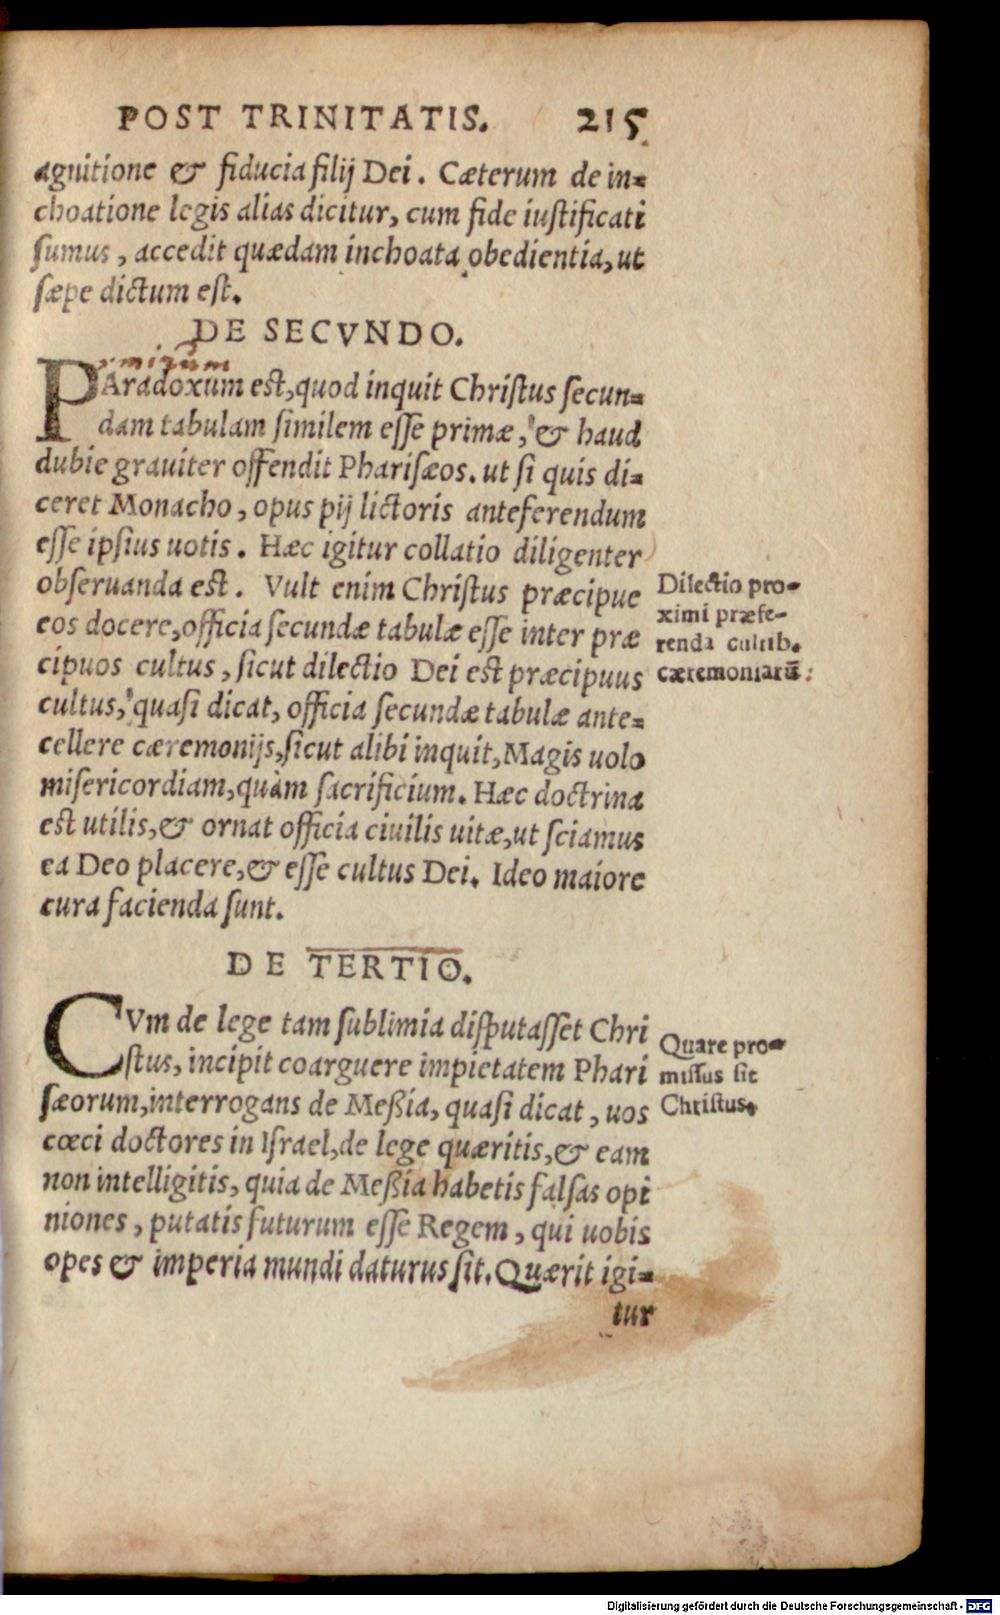 POST TRINITATIS. 215
agnitione & fiducia filij Dei. Cæterum de in-
choatione legis alias dicitur, cum fide iustificati
sumus, accedit quædam inchoata obedientia, ut
sæpe dictum est.
DE SECVNDO.
PAradoxum est, quod inquit Christus secun-
dam tabulam similem esse primæ, & haud
dubie grauiter offendit Pharisæos. ut si quis di-
ceret Monacho, opus pij lictoris anteferendum
esse ipsius uotis. Hæc igitur collatio diligenter
obseruanda est. Vult enim Christus præcipue
eos docere, officia secundæ tabulæ esse inter præ
cipuos cultus, sicut dilectio Dei est præcipuus
cultus, quasi dicat, officia secundæ tabulæ ante-
cellere cæremonijs, sicut alibi inquit, Magis uolo
misericordiam, quàm sacrificium. Hæc doctrina
est utilis, & ornat officia ciuilis uitæ, ut sciamus
ea Deo placere, & esse cultus Dei. Ideo maiore
cura facienda sunt.
Dilectio pro-
ximi præfe-
renda cultib.
cæremoniarū:
DE TERTIO.
CVm de lege tam sublimia disputasset Chri
stus, incipit coarguere impietatem Phari
sæorum, interrogans de Meßia, quasi dicat, uos
cœci doctores in Israel, de lege quæritis, & eam
non intelligitis, quia de Meßia habetis falsas opi
niones, putatis futurum esse Regem, qui uobis
opes & imperia mundi daturus sit. Quærit igi-
tur
Quare pro-
missus sit
Christus.
Digitalisierung gefördert durch die Deutsche Forschungsgemeinschaft - DFG